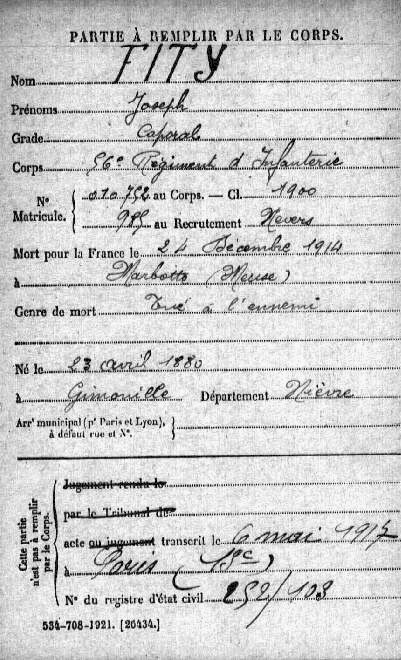 PARTIE À REMPLIR PAR LE CORPS.
Nom FITY
Prénoms Joseph
Grade Caporal
Corps 56e Régiment d'Infanterie
N° Matricule. { 010.752 au Corps. — Cl. 1900
985 au Recrutement Nevers
Mort pour la France le 24 Décembre 1914
à Marbotte (Meuse)
Genre de mort Tué à l'ennemi
Né le 23 avril 1880
à Gimouille Département Nièvre
Arrt municipal (pr Paris et Lyon), à défaut rue et N°. }
Cette partie n'est pas à remplir par le Corps.
Jugement rendu le
par le Tribunal de
acte ou jugement transcrit le 6 mai 1917
à Paris (13e)
N° du registre d'état civil 252/103
534-708-1921. [26434.]